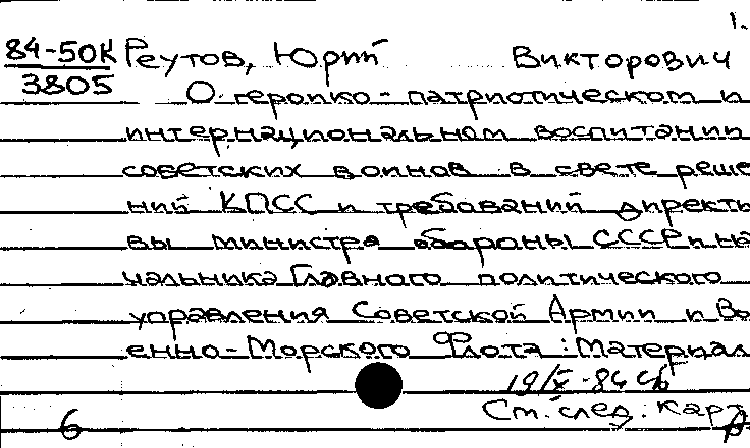 1.
84-50К Реутов, Юрий Викторович
3805
О героико-патриотическом и
интернациональном воспитании
советских воинов в свете реше
ний КПСС и требований директи
вы министра обороны СССР и на
чальника Главного политического
управления Советской Армии и Во
енно-Морского Флота: Материал
19/X-84
См. след. карт
6